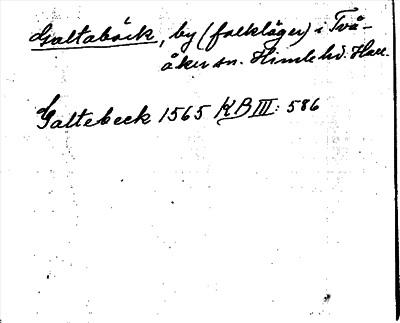 Galtabäck, by (folkläger) i Två-
åker sn. Himle hd. Hall.
Galtebeck 1565 KB III: 586